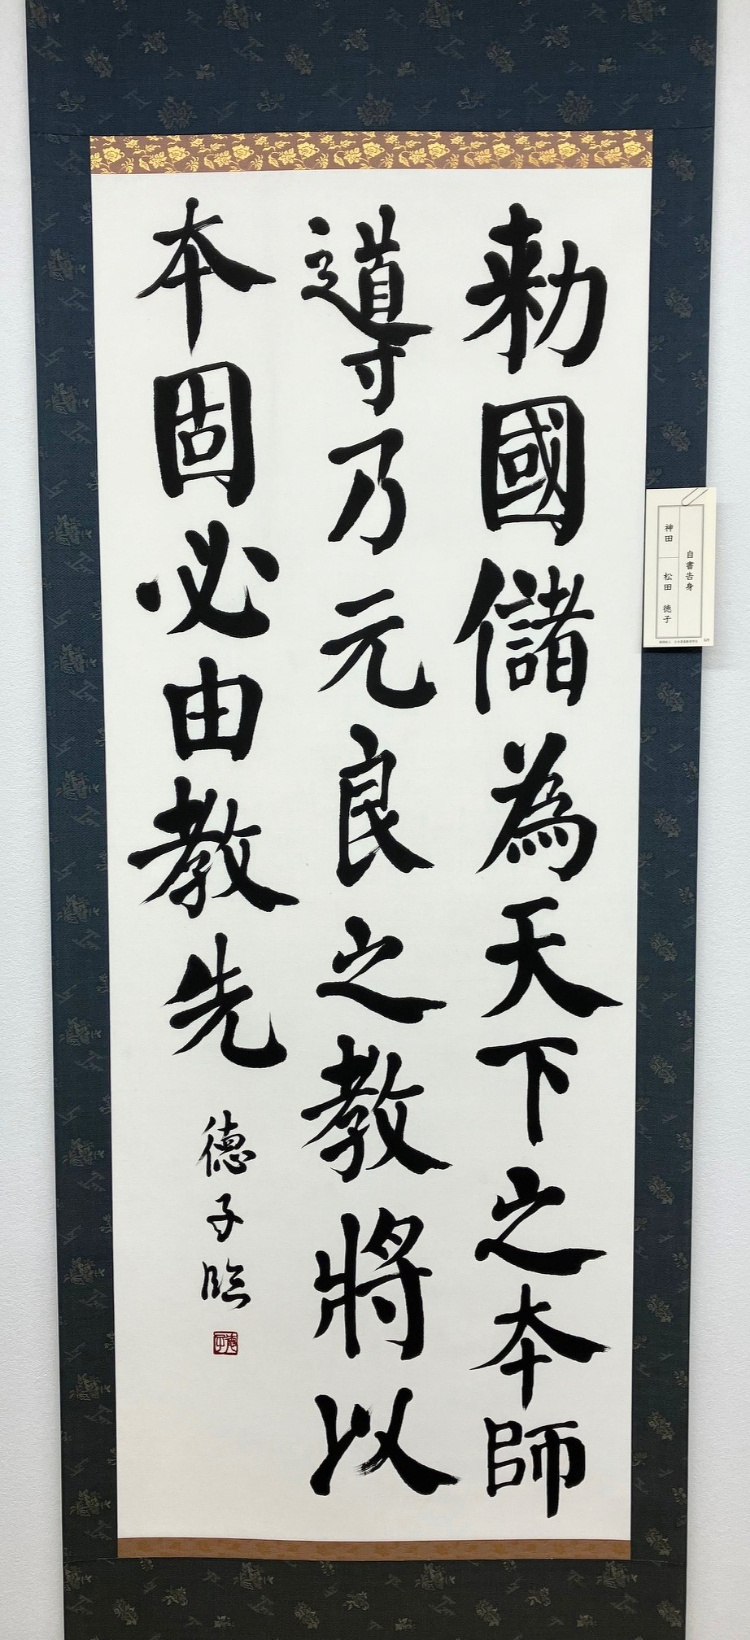 勅國儲為天下之本師
導乃元良之教將以
本固必由教先
德子臨
自書告身
神田 松田 徳子